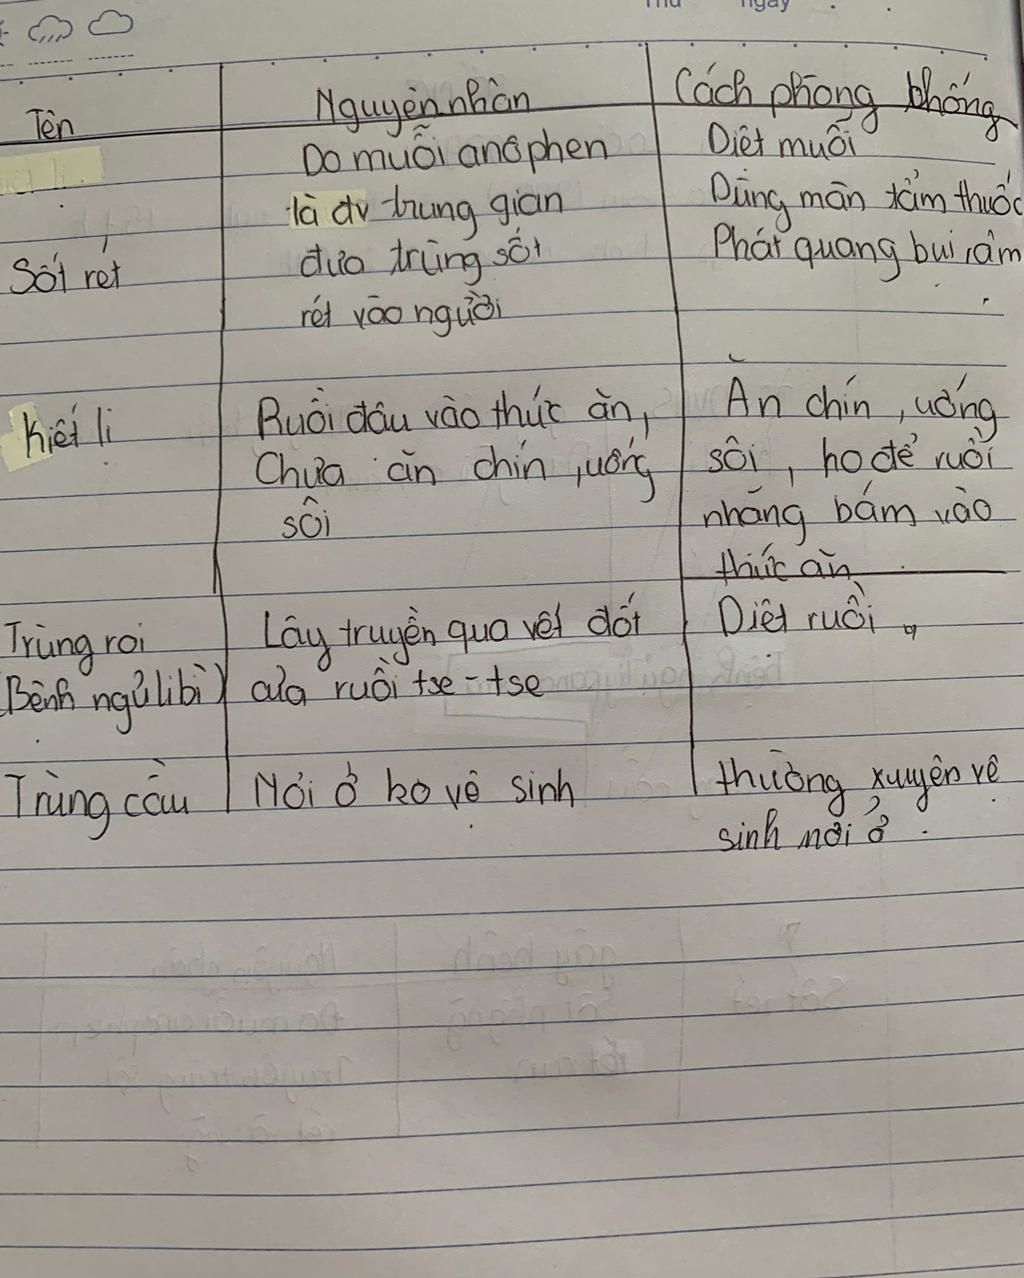 ngày
Tên
Nguyên nhân
Cách phòng chống
Sốt rét
Do muỗi anôphen
là đv trung gian
đưa trùng sốt
rét vào người
Diệt muỗi
Dùng màn tẩm thuốc
Phát quang bụi rậm
Kiết lị
Ruồi đậu vào thức ăn,
Chưa ăn chín, uống
sôi
Ăn chín, uống
sôi, ko để ruồi
nhặng bám vào
thức ăn
Trùng roi
(Bệnh ngủ li bì)
Lây truyền qua vết đốt
của ruồi tse-tse
Diệt ruồi
Trùng cầu
Nơi ở ko vệ sinh
thường xuyên vệ
sinh nơi ở.